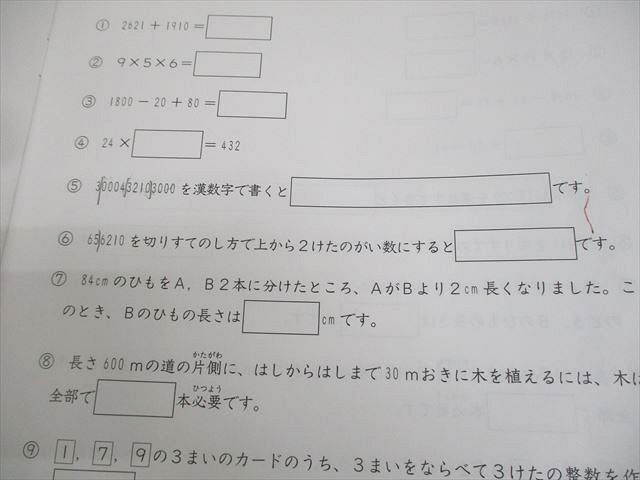 ① 2621 + 1910 =
② 9×5×6=
③ 1800 － 20 + 80 =
④ 24 × = 432
⑤ 36004532103000 を漢数字で書くと です。
⑥ 656210 を切りすてのし方で上から2けたのがい数にすると です。
⑦ 84cmのひもをA，B2本に分けたところ、AがBより2cm長くなりました。こ
のとき、Bのひもの長さは cmです。
⑧ 長さ600mの道の片側に、はしからはしまで30mおきに木を植えるには、木は
かたがわ
全部で 本必要です。
ひつよう
⑨ 1，7，9の3まいのカードのうち、3まいをならべて3けたの整数を作